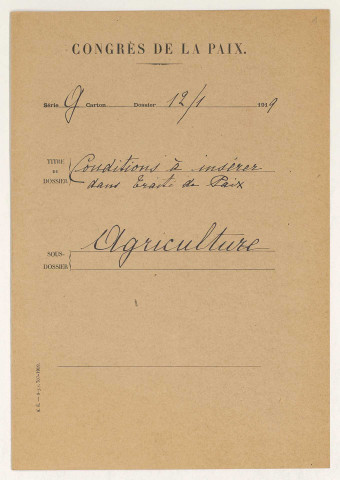 CONGRÈS DE LA PAIX.
Série G Carton Dossier 12/1 1919
TITRE
DU
DOSSIER
Conditions à insérer
dans Traité de Paix
SOUS-
DOSSIER
Agriculture